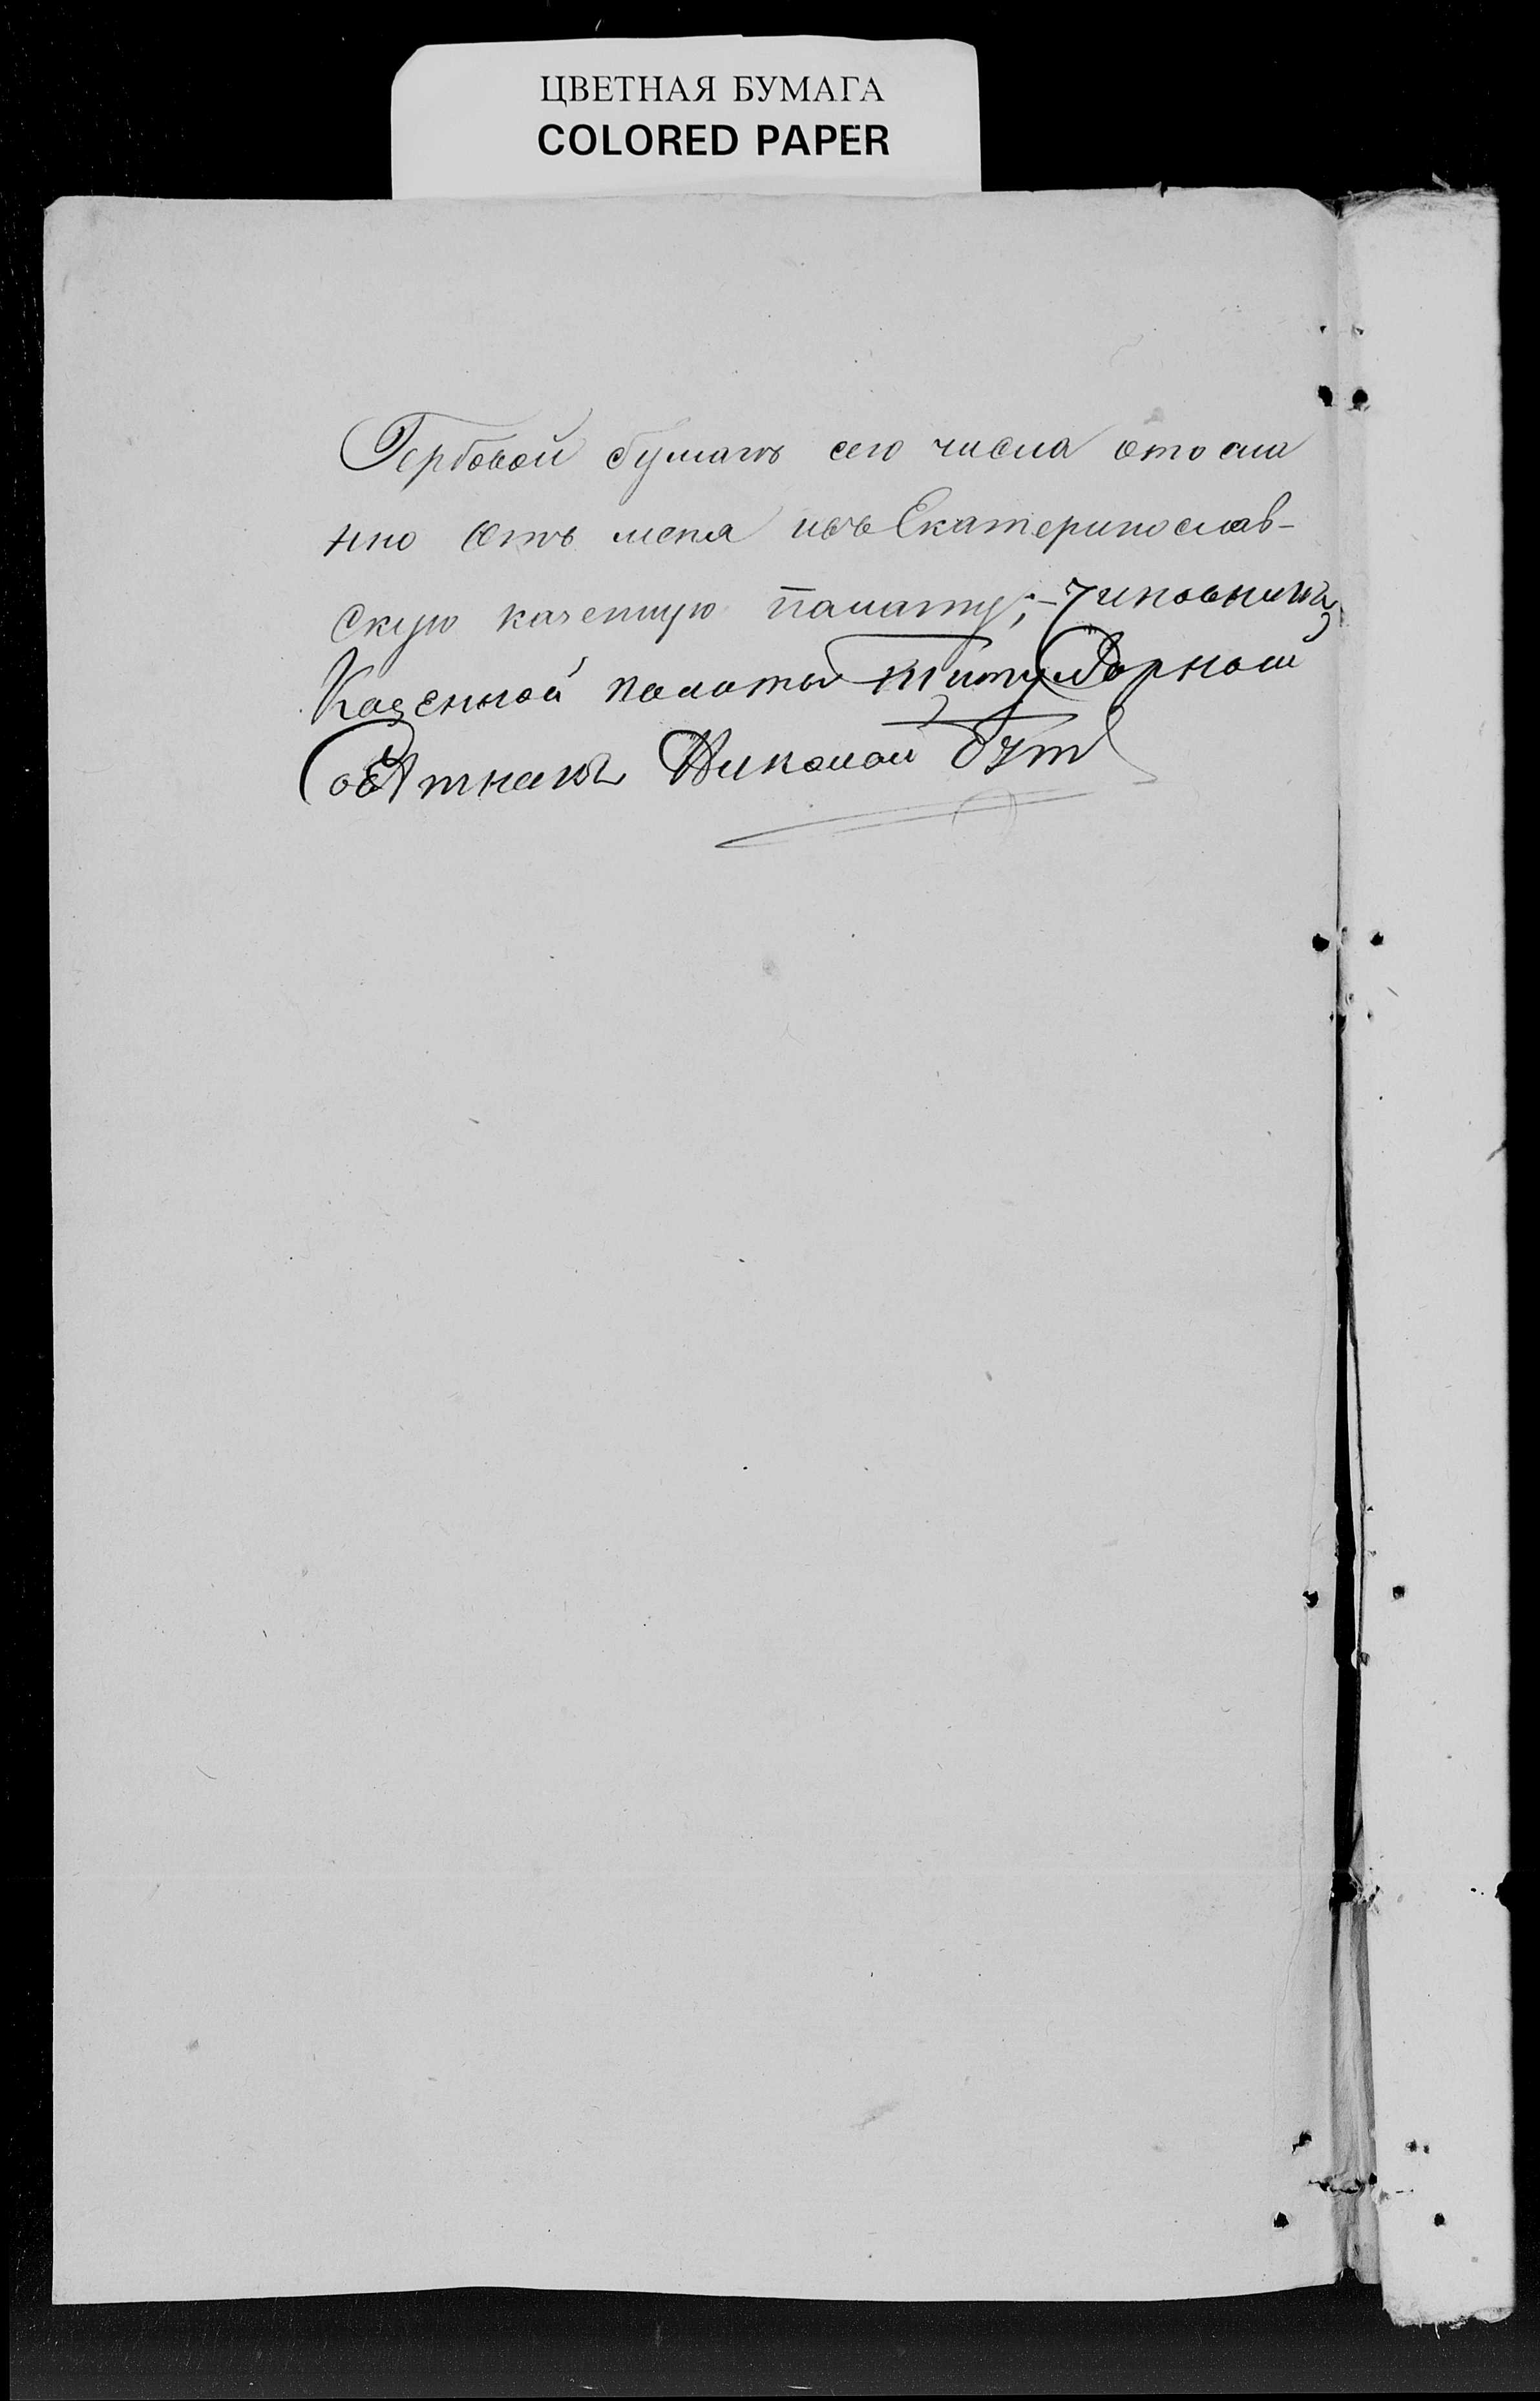 ЦВЕТНАЯ БУМАГА
COLORED PAPER
Гербовой бумаги сего числа отосла
нно отъ меня изъ Екатеринослав-
скую казенную палату; – Чиновникъ
Казенной палаты Титулярной
Советникъ Николай